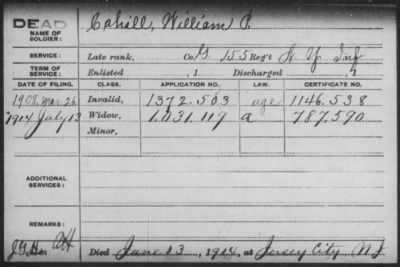 DEAD
NAME OF SOLDIER: Cahill, William P.
SERVICE: Late rank, Co. G 155 Reg't N.Y. Inf
TERM OF SERVICE: Enlisted , 1 Discharged , 1
DATE OF FILING. CLASS. APPLICATION NO. LAW. CERTIFICATE NO.
1908, Mar. 26 Invalid, 1372.503 age 1146.538
1914 July 13 Widow, 1.031.119 a 787.590
Minor,
ADDITIONAL SERVICES:
REMARKS:
Died June 13, 1914, at Jersey City N.J.